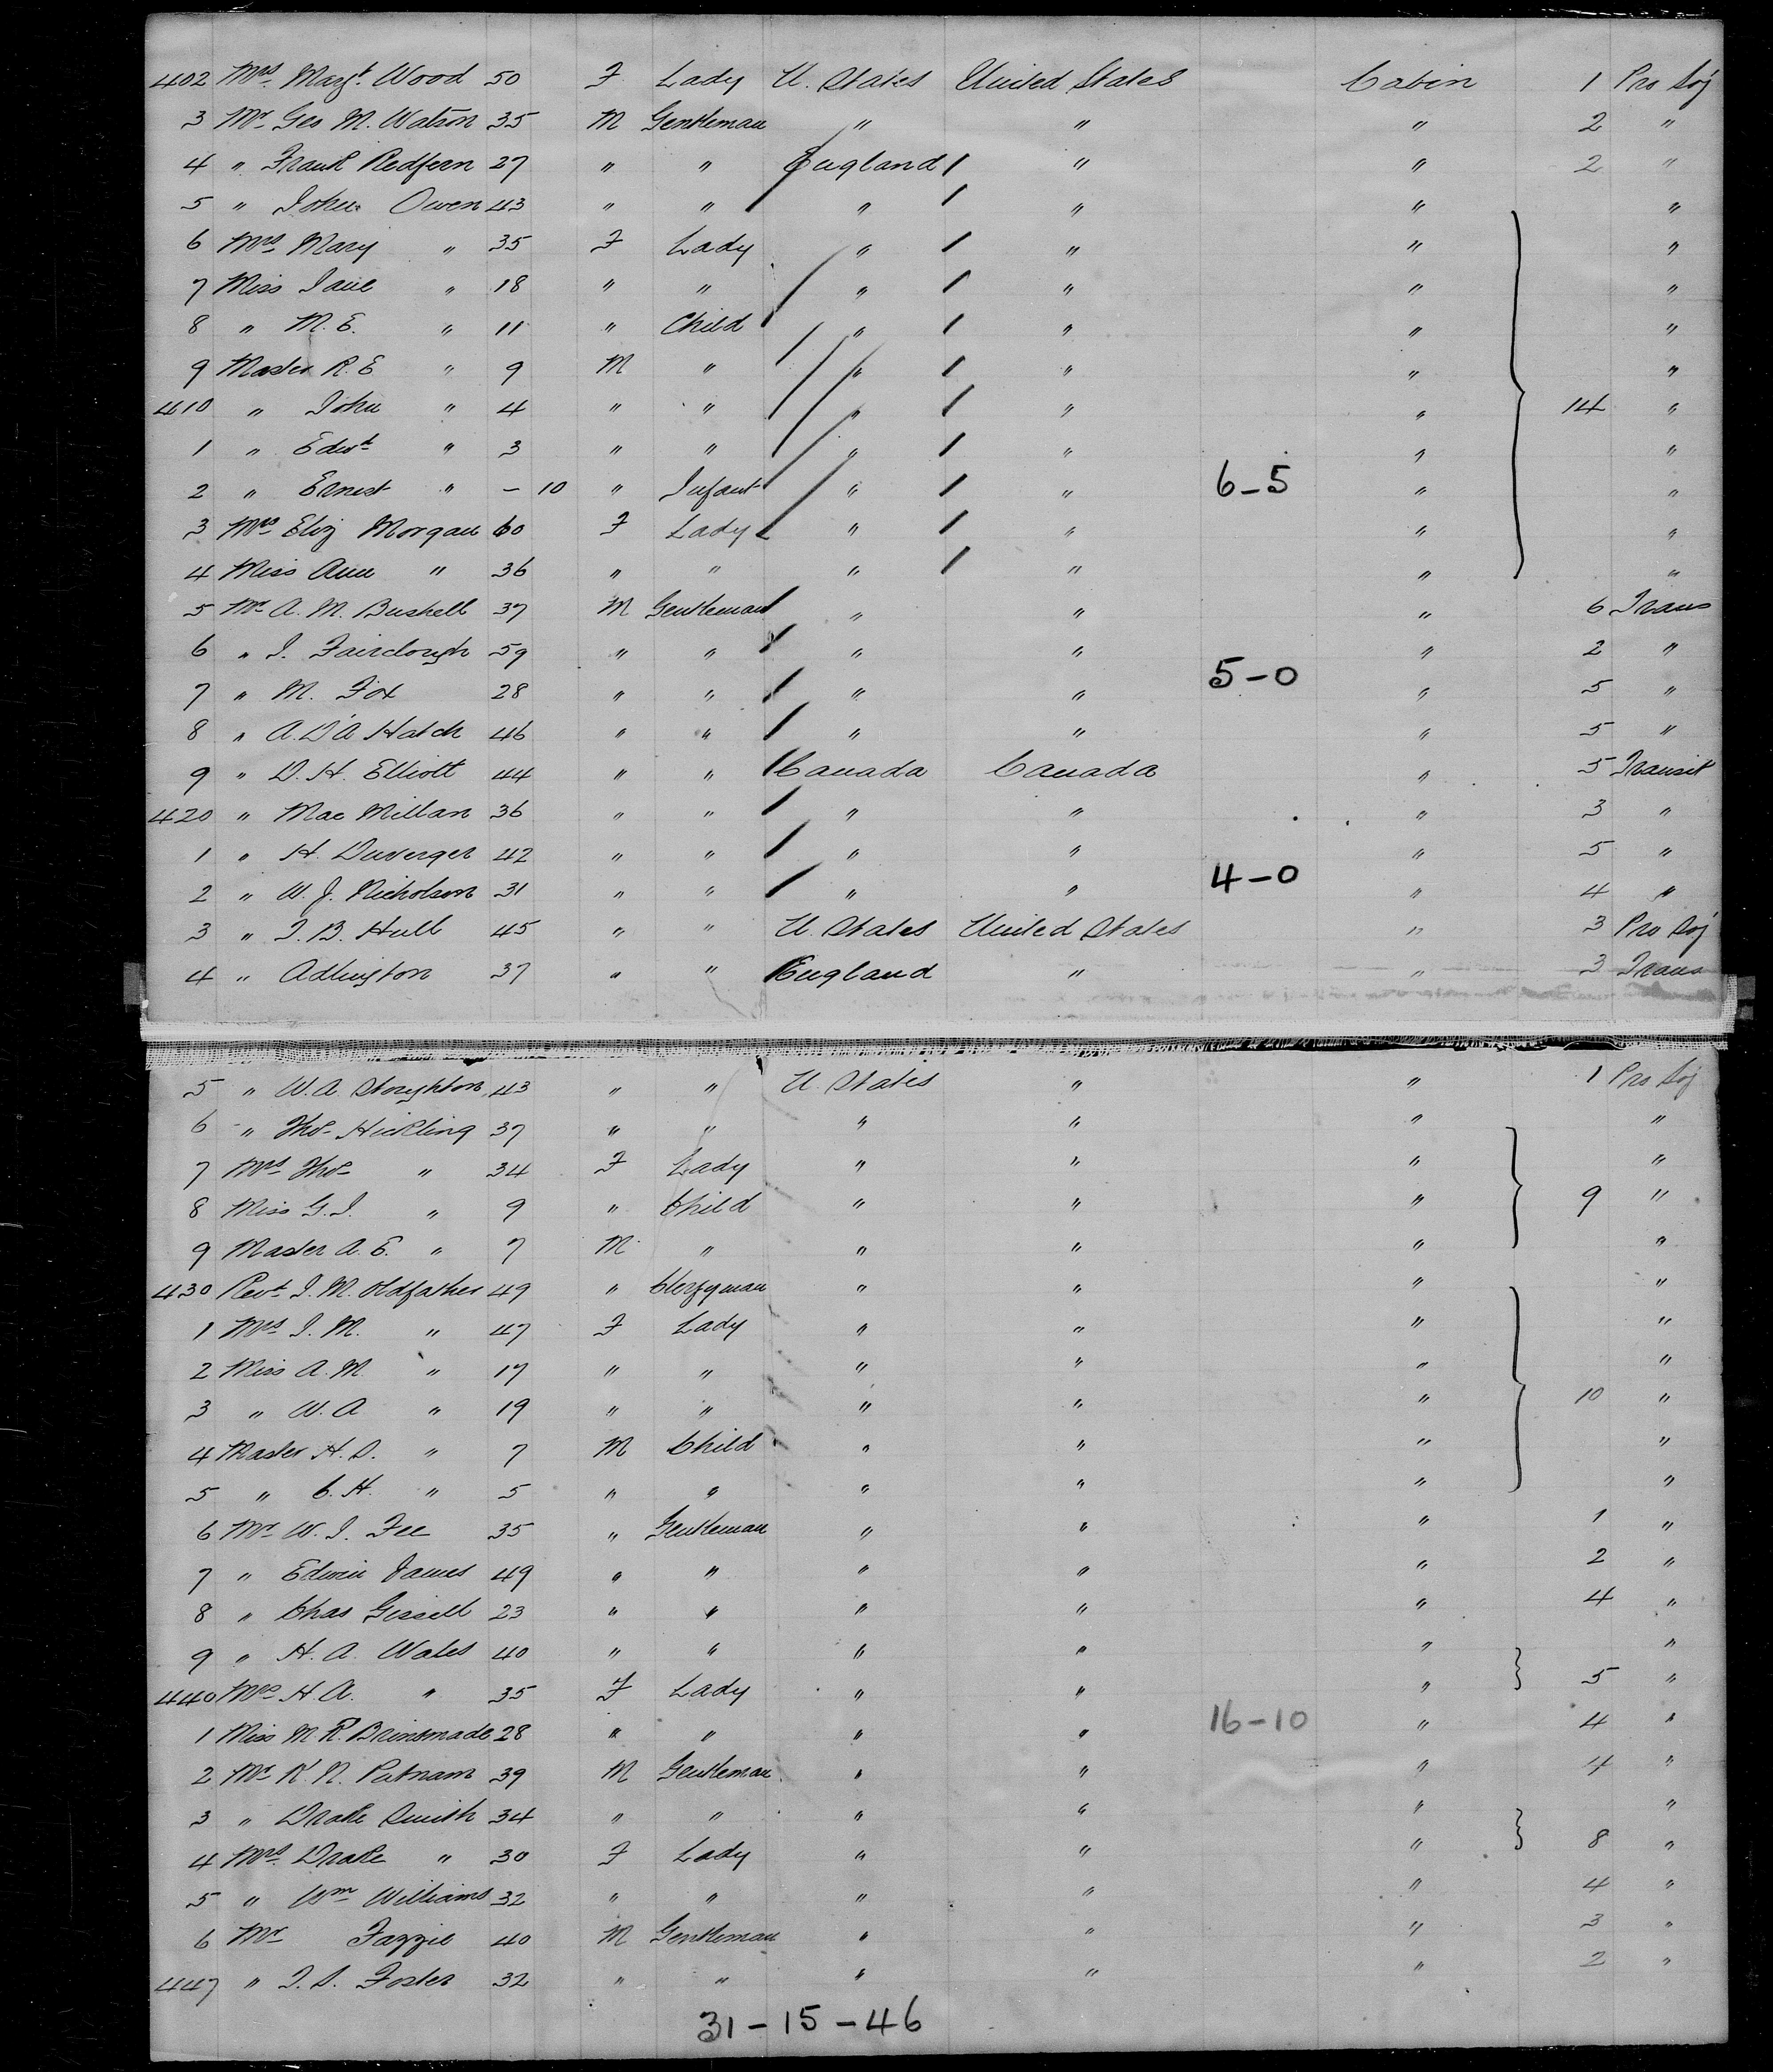 402 Mrs. Margt. Wood 50 F Lady U. States United States Cabin 1 Pro Soj
3 Mr Geo M. Watson 35 M Gentleman " " " 2 "
4 " Frank Redfern 27 " " England " " 2 "
5 " John Owen 43 " " " " " "
6 Mrs Mary " 35 F Lady " " " "
7 Miss Jane " 18 " " " " " "
8 " M. E. " 11 " Child " " " "
9 Master R. E " 9 M " " " " "
410 " John " 4 " " " " " 14 "
1 " Edwd " 3 " " " " " "
2 " Ernest " – 10 " Infant " " 6-5 " "
3 Mrs Eliz Morgan 60 F Lady " " " "
4 Miss Ann " 36 " " " " " "
5 Mr A. M. Bushell 37 M Gentleman " " " 6 Trans
6 " J. Fairclough 59 " " " " " 2 "
7 " M. Fox 28 " " " " 5-0 " 5 "
8 " A. D'A Hatch 46 " " " " " 5 "
9 " D. H. Elliott 44 " " Canada Canada " 5 Transit
420 " Mac Millan 36 " " " " " 3 "
1 " H. Duverger 42 " " " " " 5 "
2 " W. J. Nicholson 31 " " " " 4-0 " 4 "
3 " J. B. Hull 45 " " U. States United States " 3 Pro Soj
4 " Adlington 37 " " England " " 3 Trans
5 " W. A Stoughton 43 " " U. States " " 1 Pro Soj
6 " Thos Hickling 37 " " " " " "
7 Mrs Thos " 34 F Lady " " " "
8 Miss G. J. " 9 " Child " " " 9 "
9 Master A. E. " 7 M " " " " "
430 Revd J. M. Oldfather 49 " Clergyman " " " "
1 Mrs J. M. " 47 F Lady " " " "
2 Miss A. M. " 17 " " " " " "
3 " W. A " 19 " " " " " 10 "
4 Master H. S. " 7 M Child " " " "
5 " C. H. " 5 " " " " " "
6 Mr W. J. Fee 35 " Gentleman " " " 1 "
7 " Edwin James 49 " " " " " 2 "
8 " Chas Gissell 23 " " " " " 4 "
9 " H. A. Wales 40 " " " " " "
440 Mrs H. A. " 35 F Lady " " " 5 "
1 Miss M. R. Brinsmade 28 " " " " 16-10 " 4 "
2 Mr K. N. Putnam 39 M Gentleman " " " 4 "
3 " Drake Smith 34 " " " " " "
4 Mrs. Drake " 30 F Lady " " " 8 "
5 " Wm Williams 32 " " " " " 4 "
6 Mr Fazzie 40 M Gentleman " " " 3 "
447 " J. S. Foster 32 " " " " " 2 "
31-15-46